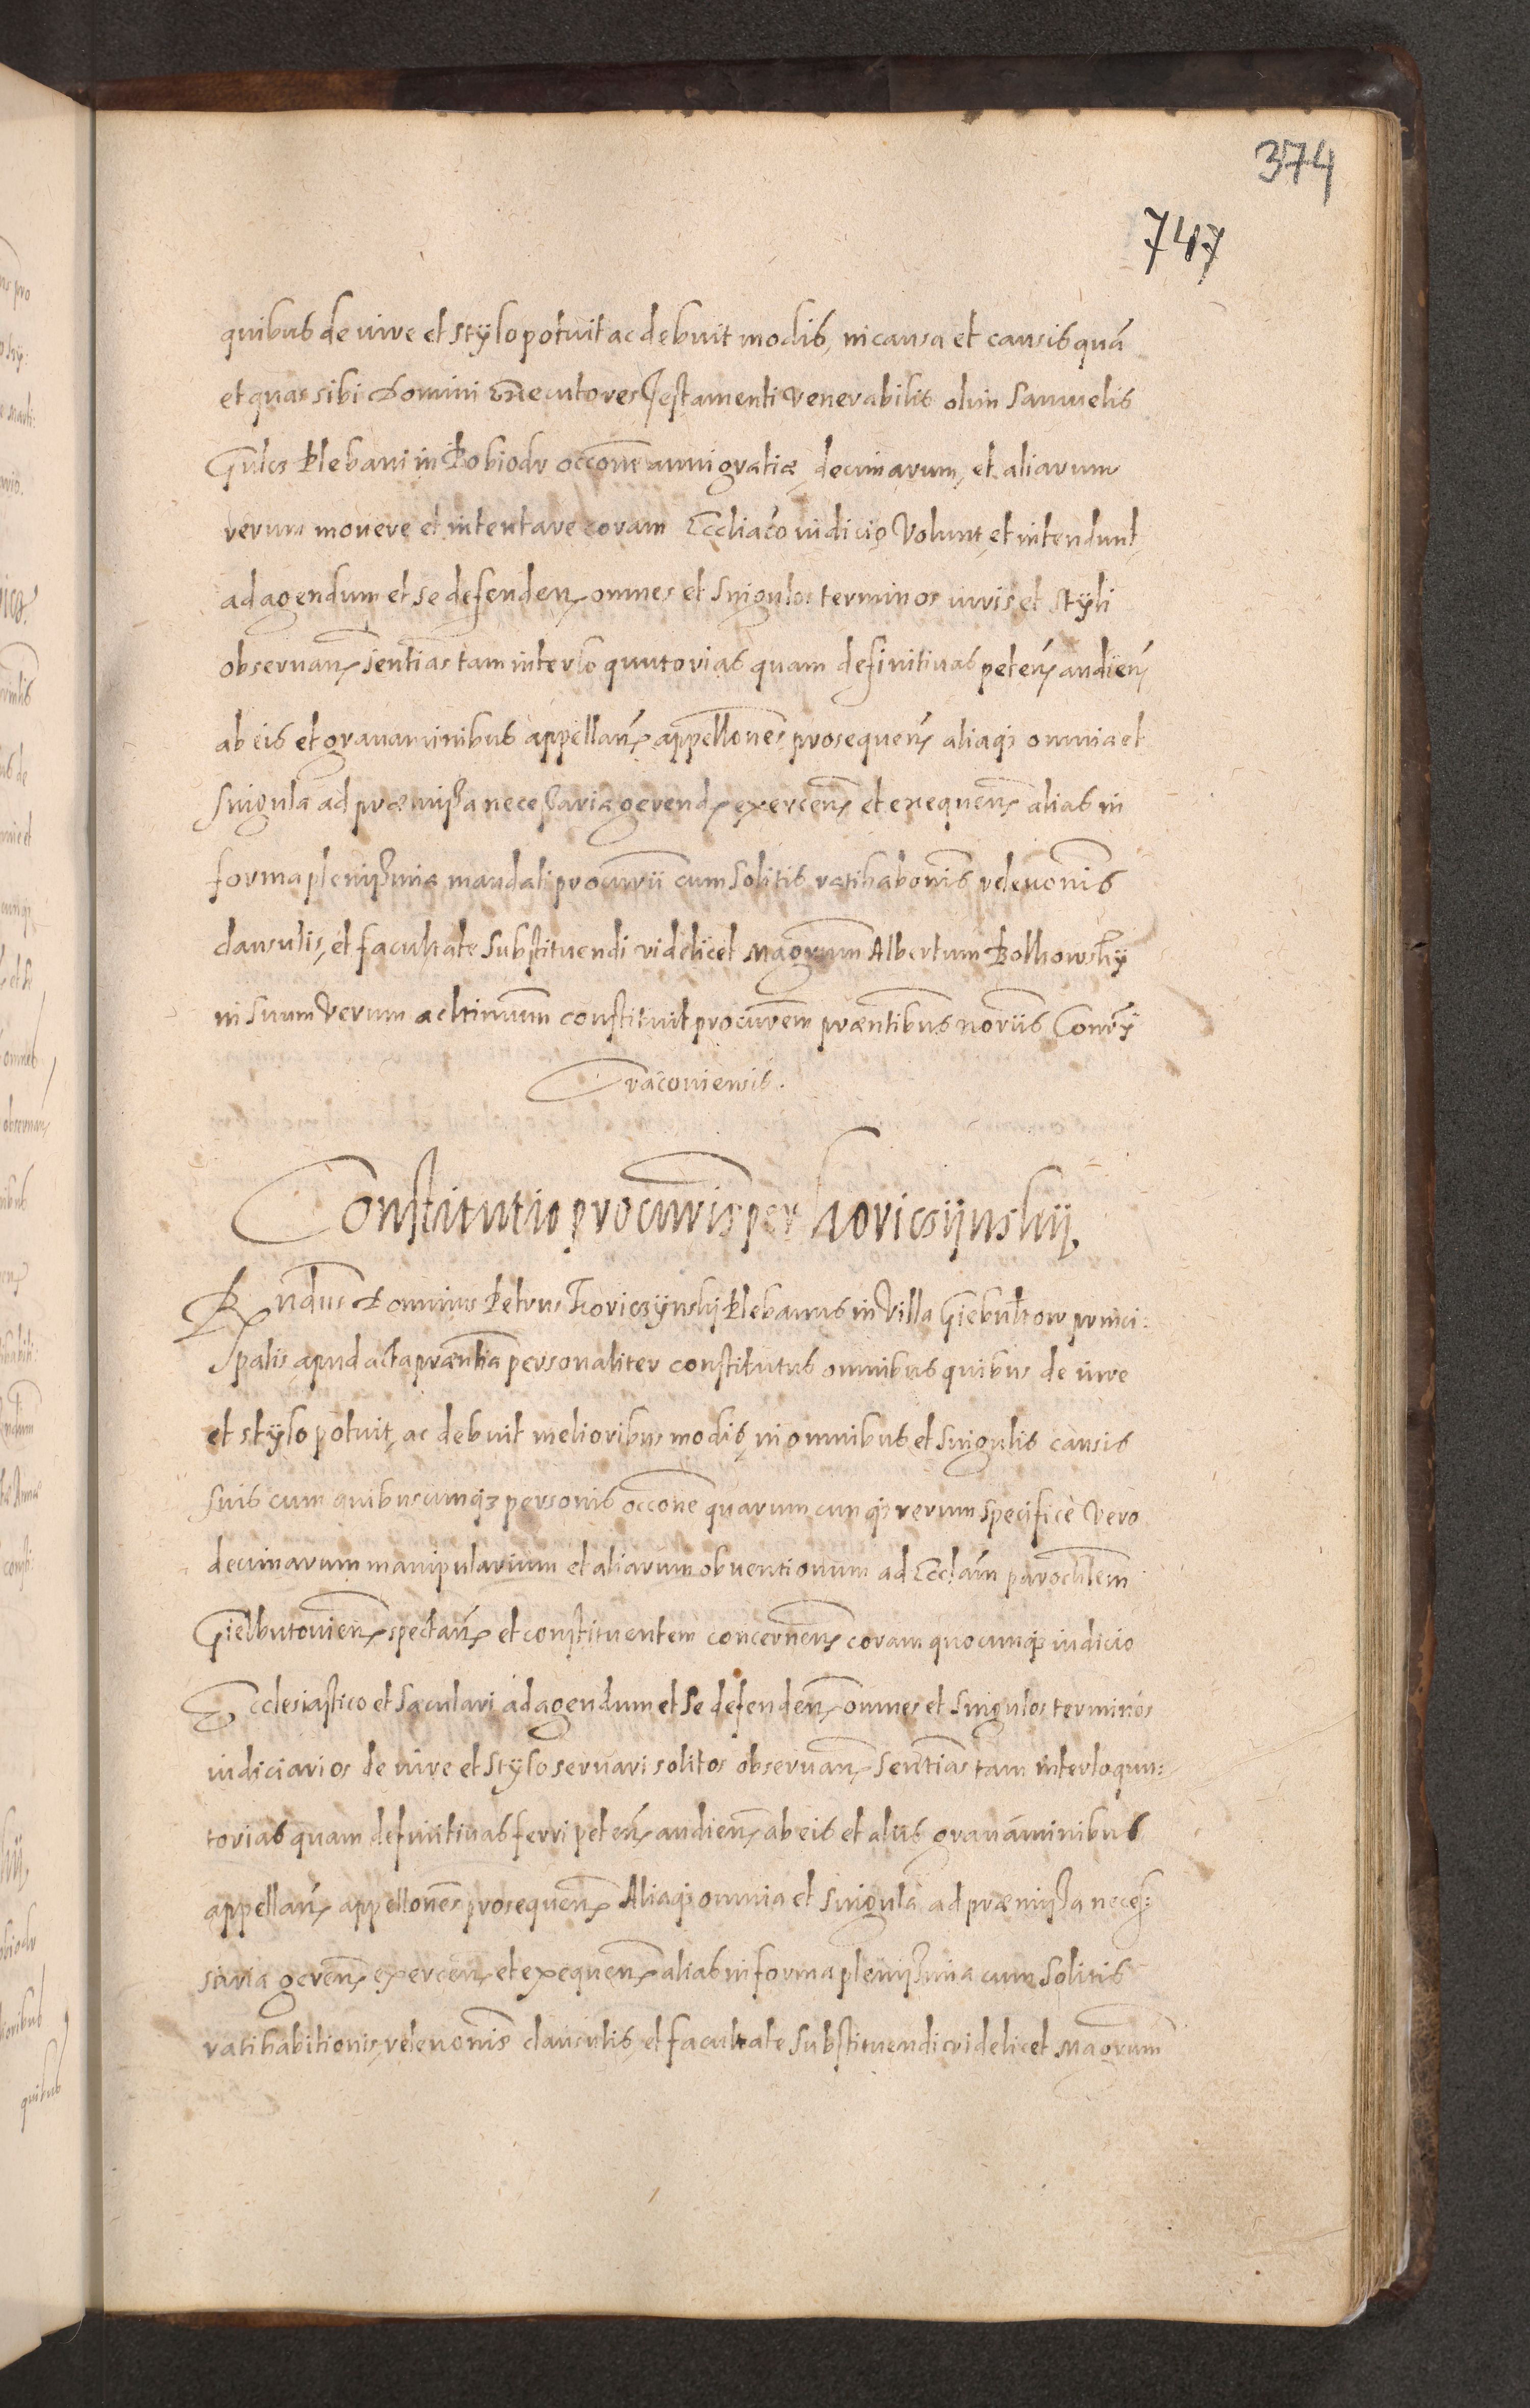 374
747
quibus de iure et stylo potuit ac debuit modis, in causa et causis quã
et quas sibi Domini Executores Testamenti Venerabilis olim Samuelis
Plebani in Pobiedr occõne anni gratiæ, decimarum, et aliarum
rerum movere et intentare coram Eccliãco iudicio Volunt, et intendunt
ad agendum et se defenden, omnes et singulos terminos iuris et styli
observan, sentias tam interloquutorias quam definitivas peteñ, audieñ
ab eis et gravaminibus appellañ, appellones prosequeñ, aliaq; omnia et
singula ad præmissa necessaria gerend, exerceñ, et exequeñ, alias in
forma plenissima mandati procurii cum solitis ratihabonis relevonis
clausulis, et facultate substituendi videlicet Magrum Albertum Bolkowsky
in suum verum ac ltimum constituit procurem præntibus noriis Conrÿ
Cracoviensis.
Constitutio procuris per Koriczÿnskij,
Rndus Dominus Petrus Koriczÿnskij Plebanus in Villa Giebultow princi:
palis apud acta præntia personaliter constitutus omnibus quibus de iure
et stylo potuit, ac debuit melioribus modis, in omnibus et singulis causis
suis cum quibuscumq; personis occone quarumcunq; rerum specificè vero
decimarum manipularium et aliarum obventionum ad Ecclam parochlem
Gielbutovien, spectañ, et constituentem concerneñ, coram quocunq; iudicio
Ecclesiastico et sæculari ad agendum et se defenden, omnes et singulos terminos
iudiciarios de iure et stylo servari solitos observan, sentias tam interloquu:
torias quam definitivas ferri peteñ, audien, ab eis et aliis gravaminibus
appellañ, appellones prosequen, Aliaq; omnia et singula ad præmissa neces:
saria geren, exercen, et exequen, alias in forma plenissima cum solitis
ratihabitionis, relevonis clausulis, et facultate substituendi videlicet Magrum